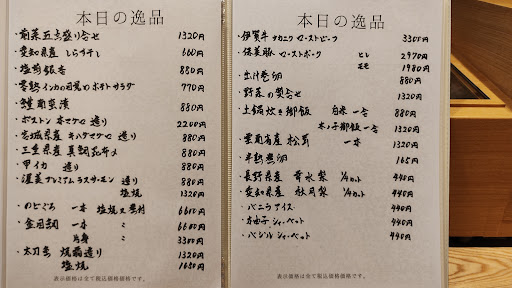 本日の逸品
・前菜五点盛り合せ 1320円
・愛知県産 しらす干し 660円
・塩煎銀杏 880円
・インカの目覚めポテトサラダ 770円
・880円
・ボストン 本マグロ 造り 2200円
・宮城県産 キハダマグロ 造り 880円
・三重県産 真鯛昆布〆 880円
・甲イカ 造り 880円
・渥美プレミアムラスサーモン 造り 880円
塩焼 1320円
・のどぐろ 一本 塩焼又煮付 6600円
・金目鯛 一本 〃 6600円
片身 〃 3300円
・太刀魚 焼霜造り 1320円
塩焼 1650円
表示価格は全て税込価格価格です。
本日の逸品
・伊賀牛 ローストビーフ 3300円
・保美豚 ローストポーク ヒレ 2970円
モモ 1980円
・出汁巻卵 880円
・野菜の炊合せ 1320円
・土鍋炊き御飯 白米 一合 880円
きのこ御飯 一合 1320円
・雲南省産 松茸 一本 1320円
・半熟煮卵 165円
・長野県産 幸水梨 1/4カット 440円
・愛知県産 秋月梨 1/4カット 440円
・バニラアイス 440円
・柚子シャーベット 440円
・バジルシャーベット 440円
表示価格は全て税込価格価格です。